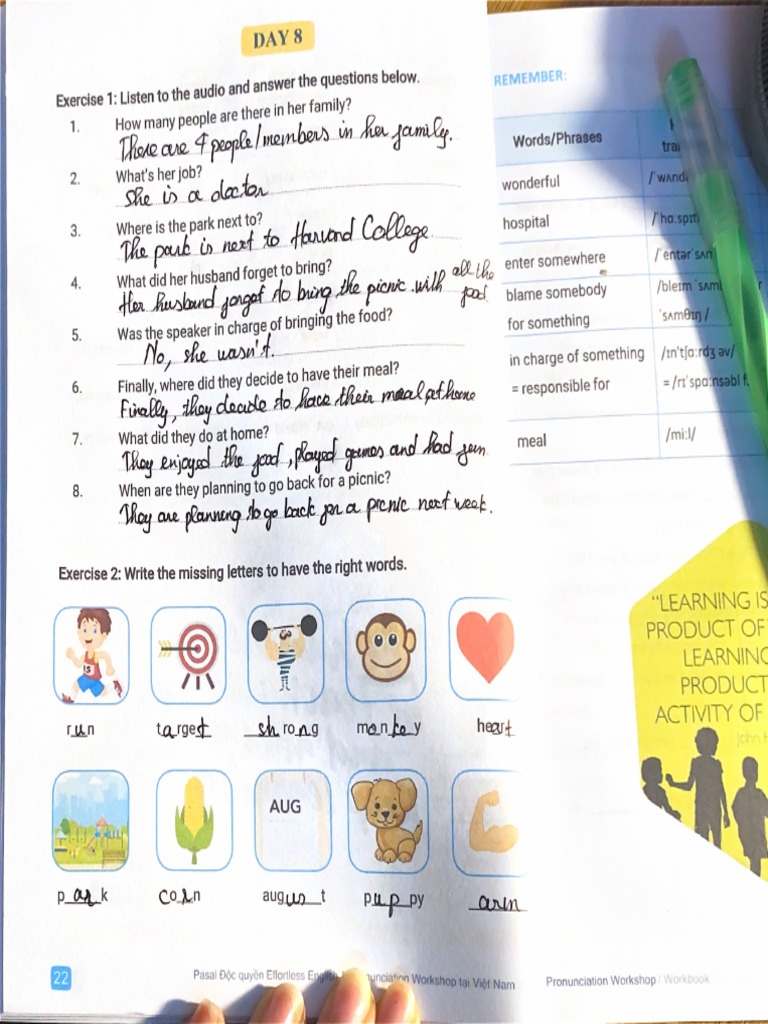 DAY 8
Exercise 1: Listen to the audio and answer the questions below.
1. How many people are there in her family?
There are 4 people/members in her family.
2. What's her job?
She is a doctor
3. Where is the park next to?
The park is next to Harvard College.
4. What did her husband forget to bring?
Her husband forget to bring the picnic with all the food.
5. Was the speaker in charge of bringing the food?
No, she wasn't.
6. Finally, where did they decide to have their meal?
Finally, they decide to have their meal at home
7. What did they do at home?
They enjoyed the food, played games and had fun
8. When are they planning to go back for a picnic?
They are planning to go back for a picnic next week.
Exercise 2: Write the missing letters to have the right words.
15
run target shrong monkey heart
AUG
park corn august puppy arm
22
Pasal Độc quyền Effortless English Workshop tại Việt Nam
REMEMBER:
Words/Phrases
wonderful
hospital /ˈhɑːspɪt
enter somewhere /ˈentər ˈsʌm
blame somebody /bleɪm ˈsʌm
for something ˈsʌmθɪŋ /
in charge of something /ɪn'tʃɑːrdʒ əv/
= responsible for = /rɪˈspɑːnsəbl f
meal /miːl/
"LEARNING IS
PRODUCT OF
LEARNING
PRODUCT
ACTIVITY OF
John
Pronunciation Workshop / Workbook